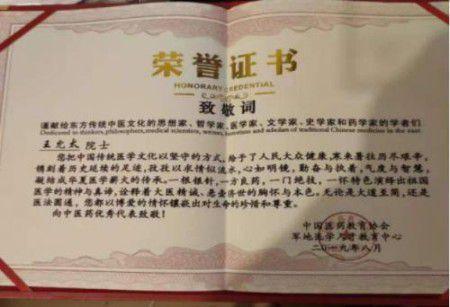 荣誉证书
HONORARY CREDENTIAL
致敬词
谨献给东方传统中医文化的思想家、哲学家、医学家、文学家、史学和药学家的学者们
Dedicated to thinkers, philosophers, medical scientists, writers, historians and scholars of traditional Chinese medicine in the east
王允太 院士
您把中国传统医学文化以坚守的方式,给予了人民大众健康,寒来暑往历尽艰辛,
镌刻着历史延续的足迹,孜孜以求情似流水,心如明镜,勤奋与执着,气度与智慧,
凝结成华夏医学薪火的传承。一根银针,一方良药,一门绝技,一怀特色演绎出祖国
医学的精神与美谛,诠释着大医精诚、悬壶济世的胸怀与本色。无论是大道至简,还是
医法圆通,您都以博爱的情怀镶嵌出对生命的珍惜和尊重。
向中医药优秀代表致敬!
中国医药教育协会
军地 教育中心
二〇一九年八月